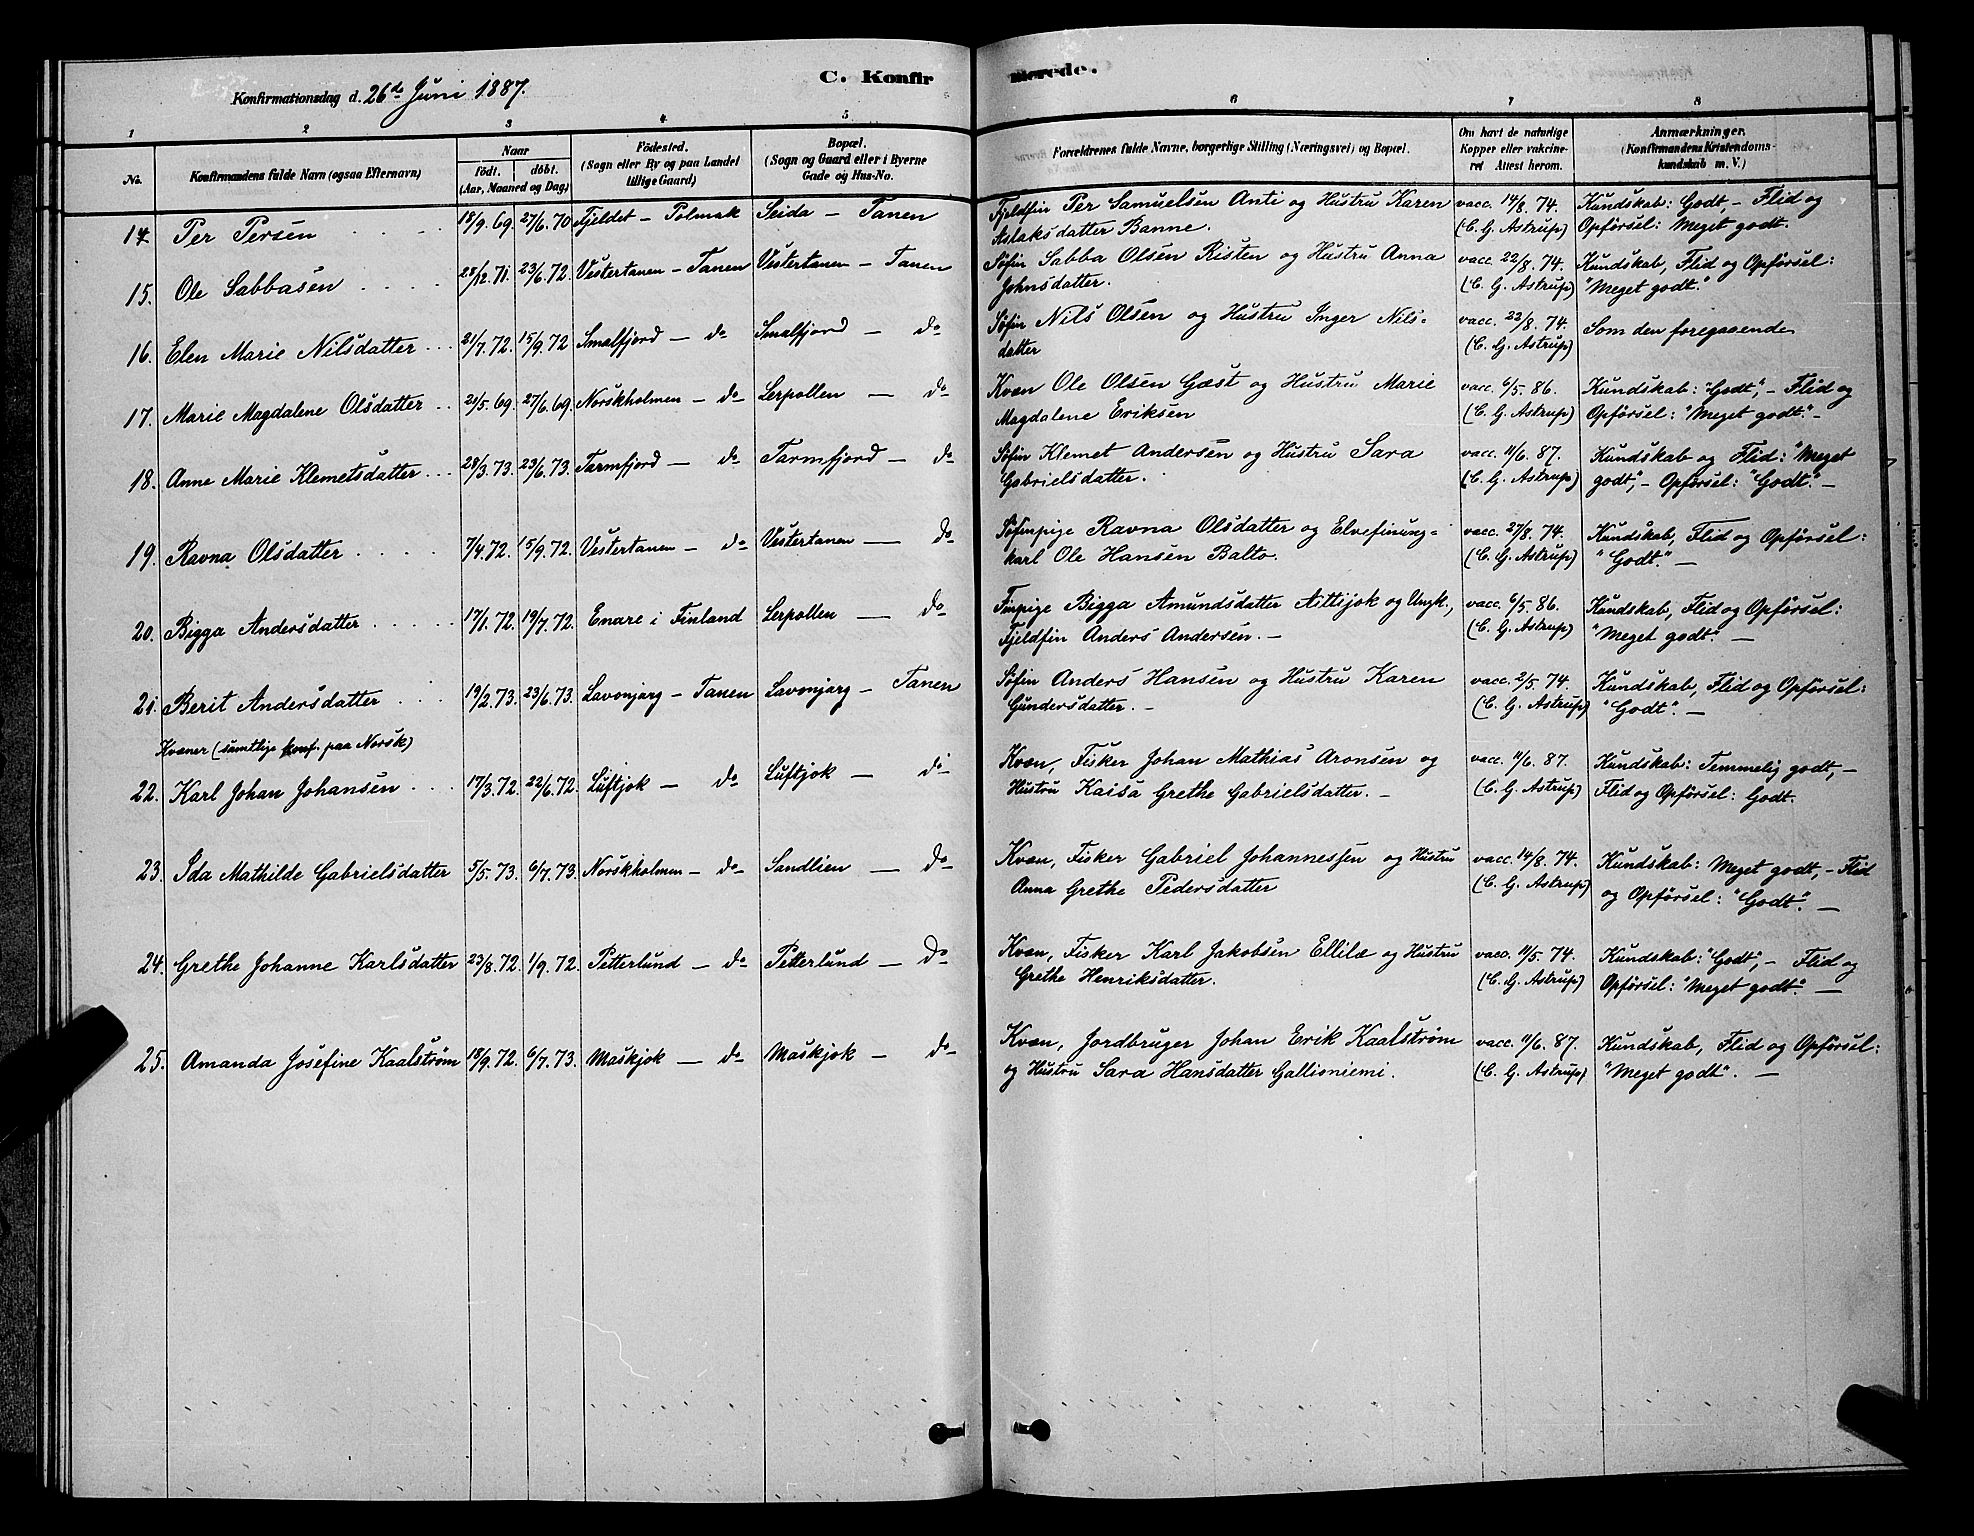 C. Konfirmerede.
Konfirmationsdag d. 26de Juni 1887.
1 2 3 4 5 6 7 8
No. Konfirmandens fulde Navn (ogsaa Efternavn) Naar født. døbt. (Aar, Maaned og Dag) Födested. (Sogn eller By og paa Landet tillige Gaard) Bopæl. (Sogn og Gaard eller i Byerne Gade og Hus-No. Forældrenes fulde Navne, borgerlige Stilling (Næringsvei) og Bopæl. Om havt de naturlige Kopper eller vakcineret Attest herom. Anmærkninger. (Konfirmandens Kristendomskundskab m. V.)
14. Per Persen 18/9. 69. 27/6. 70 Fjeldet - Polmak Seida - Tanen Fjeldfin Per Samuelsen Anti og Hustru Karen vacc. 14/8. 74. Kundskab: Godt, - Flid og
Aslaksdatter Banne. (C. G. Astrup) Opførsel: Meget godt.
15. Ole Sabbasen 28/12. 71. 23/6. 72. Vestertanen - Tanen Vestertanen - Tanen Søfin Sabba Olsen Risten og Hustru Anna vacc. 22/8. 74. Kundskab, Flid og Opførsel:
Johnsdatter. (C. G. Astrup) "Meget godt."
16. Elen Marie Nilsdatter 21/7. 72. 15/9. 72 Smalfjord - do Smalfjord - do Søfin Nils Olsen og Hustru Inger Nils- vacc. 22/8. 74. Som den foregaaende
datter (C. G. Astrup)
17. Marie Magdalene Olsdatter 21/5. 69. 27/6. 69. Norskholmen - do Lerpollen - do Kvæn Ole Olsen Gæst og Hustru Marie vacc. 6/5. 86. Kundskab: "Godt", - Flid og
Magdalene Eriksen (C. G. Astrup) Opførsel: "Meget godt." -
18. Anne Marie Klemetsdatter 28/3. 73. 23/6. 73. Tarmfjord - do Tarmfjord - do Søfin Klemet Andersen og Hustru Sara vacc. 11/6. 87. Kundskab og Flid: "Meget
Gabrielsdatter. (C. G. Astrup) godt", - Opførsel: "Godt." -
19. Ravna Olsdatter 7/4. 72. 15/9. 72. Vestertanen - do Vestertanen - do Søfinpige Ravna Olsdatter og Elvefinung- vacc. 27/8. 74. Kundskab, Flid og Opførsel:
karl Ole Hansen Balto. (C. G. Astrup) "Godt." -
20. Bigga Andersdatter 17/1. 72. 19/7. 72. Enare i Finland Lerpollen - do Finpige Bigga Amundsdatter Aittijok og Ungk., vacc. 6/5. 86. Kundskab, Flid og Opførsel:
Fjeldfin Anders Andersen. - (C. G. Astrup) "Meget godt." -
21. Berit Andersdatter 19/2. 73. 23/6. 73. Lavonjarg - Tanen Lavonjarg - Tanen Søfin Anders Hansen og Hustru Karen vacc. 2/5. 74. Kundskab, Flid og Opførsel:
Gundersdatter. - (C. G. Astrup) "Godt". -
Kvæner (samtlige konf. paa Norsk)
22. Karl Johan Johansen 17/3. 72. 22/6. 72. Luftjok - do Luftjok - do Kvæn, Fisker Johan Mathias Aronsen og vacc. 11/6. 87. Kundskab: Temmelig godt, -
Hustru Kaisa Grethe Gabrielsdatter. - (C. G. Astrup) Flid og Opførsel: Godt.
23. Ida Mathilde Gabrielsdatter 5/5. 73. 6/7. 73. Norskholmen - do Sandlien - do Kvæn, Fisker Gabriel Johannessen og Hustru vacc. 14/8. 74. Kundskab: Meget godt, - Flid
Anna Grethe Pedersdatter (C. G. Astrup) og Opførsel: "Godt". -
24. Grethe Johanne Karlsdatter 23/8. 72. 1/9. 72. Petterlund - do Petterlund - do Kvæn, Fisker Karl Jakobsen Ellilæ og Hustru vacc. 11/5. 74. Kundskab: "Godt", - Flid og
Grethe Henriksdatter. (C. G. Astrup) Opførsel: "Meget godt". -
25. Amanda Josefine Kaalstrøm 18/9. 72. 6/7. 73. Maskjok - do Maskjok - do Kvæn, Jordbruger Johan Erik Kaalstrøm vacc. 11/6. 87. Kundskab, Flid og Opførsel:
og Hustru Sara Hansdatter Gallioniemi. (C. G. Astrup) "Meget godt". -